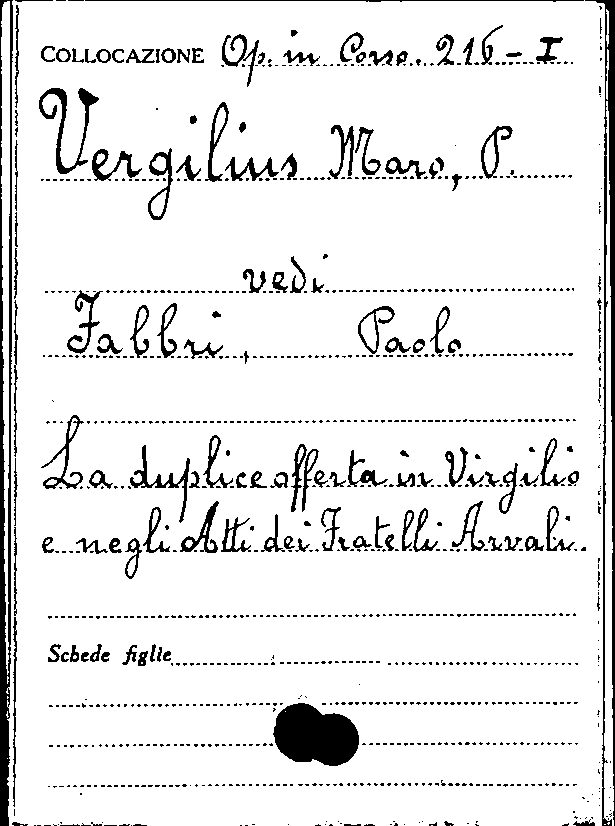 COLLOCAZIONE Op. in Corso. 216 - I
Vergilius Maro, P.
vedi
Fabbri, Paolo
La duplice offerta in Virgilio
e negli Atti dei Fratelli Arvali.
Schede figlie